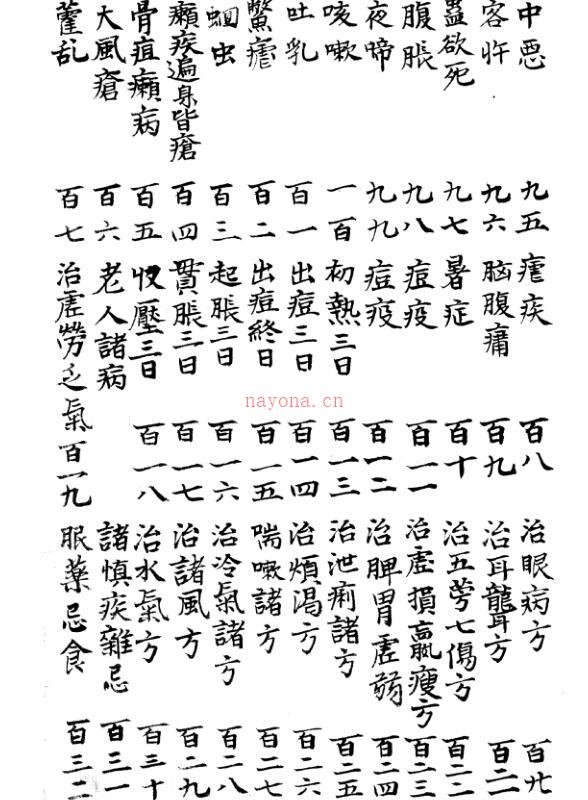 中悪 九五
客忤 九六
蠱欲死 九七
腹脹 九八
夜啼 九九
咳嗽 一百
吐乳 百一
驚瘧 百二
蛔虫 百三
癩疾遍身皆瘡 百四
骨疽癩病 百五
大風瘡 百六
藿乱 百七
瘧疾 百八
脑腹痛 百九
暑症 百十
痘疫 百一一
痘疫 百一二
初熱三日 百一三
出痘三日 百一四
出痘終日 百一五
起脹三日 百一六
貫脹三日 百一七
收壓三日 百一八
老人諸病
治虚勞乏氣 百一九
治眼病方 百廿
治耳聾方 百二
治五劳七傷方 百二二
治虚損羸瘦方 百二三
治脾胃虚弱 百二四
治泄痢諸方 百二五
治煩渴方 百二六
喘嗽諸方 百二七
治冷氣諸方 百二八
治諸風方 百二九
治水氣方 百三十
諸慎疾雜忌 百三一
服薬忌食 百三二
nayona.cn